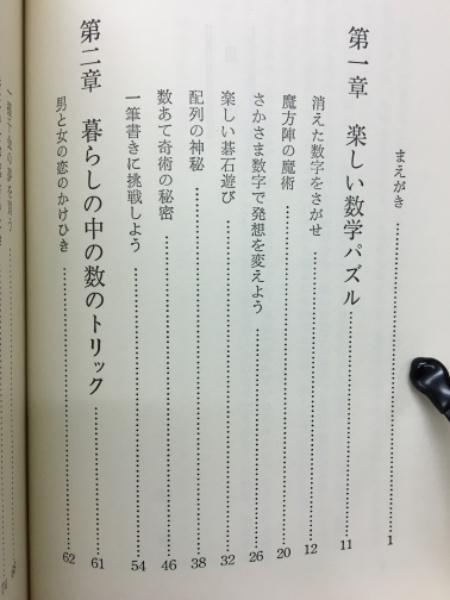 まえがき……1
第一章　楽しい数学パズル……11
消えた数字をさがせ……12
魔方陣の魔術……20
さかさま数字で発想を変えよう……26
楽しい碁石遊び……32
配列の神秘……38
数あて奇術の秘密……46
一筆書きに挑戦しよう……54
第二章　暮らしの中の数のトリック……61
男と女の恋のかけひき……62